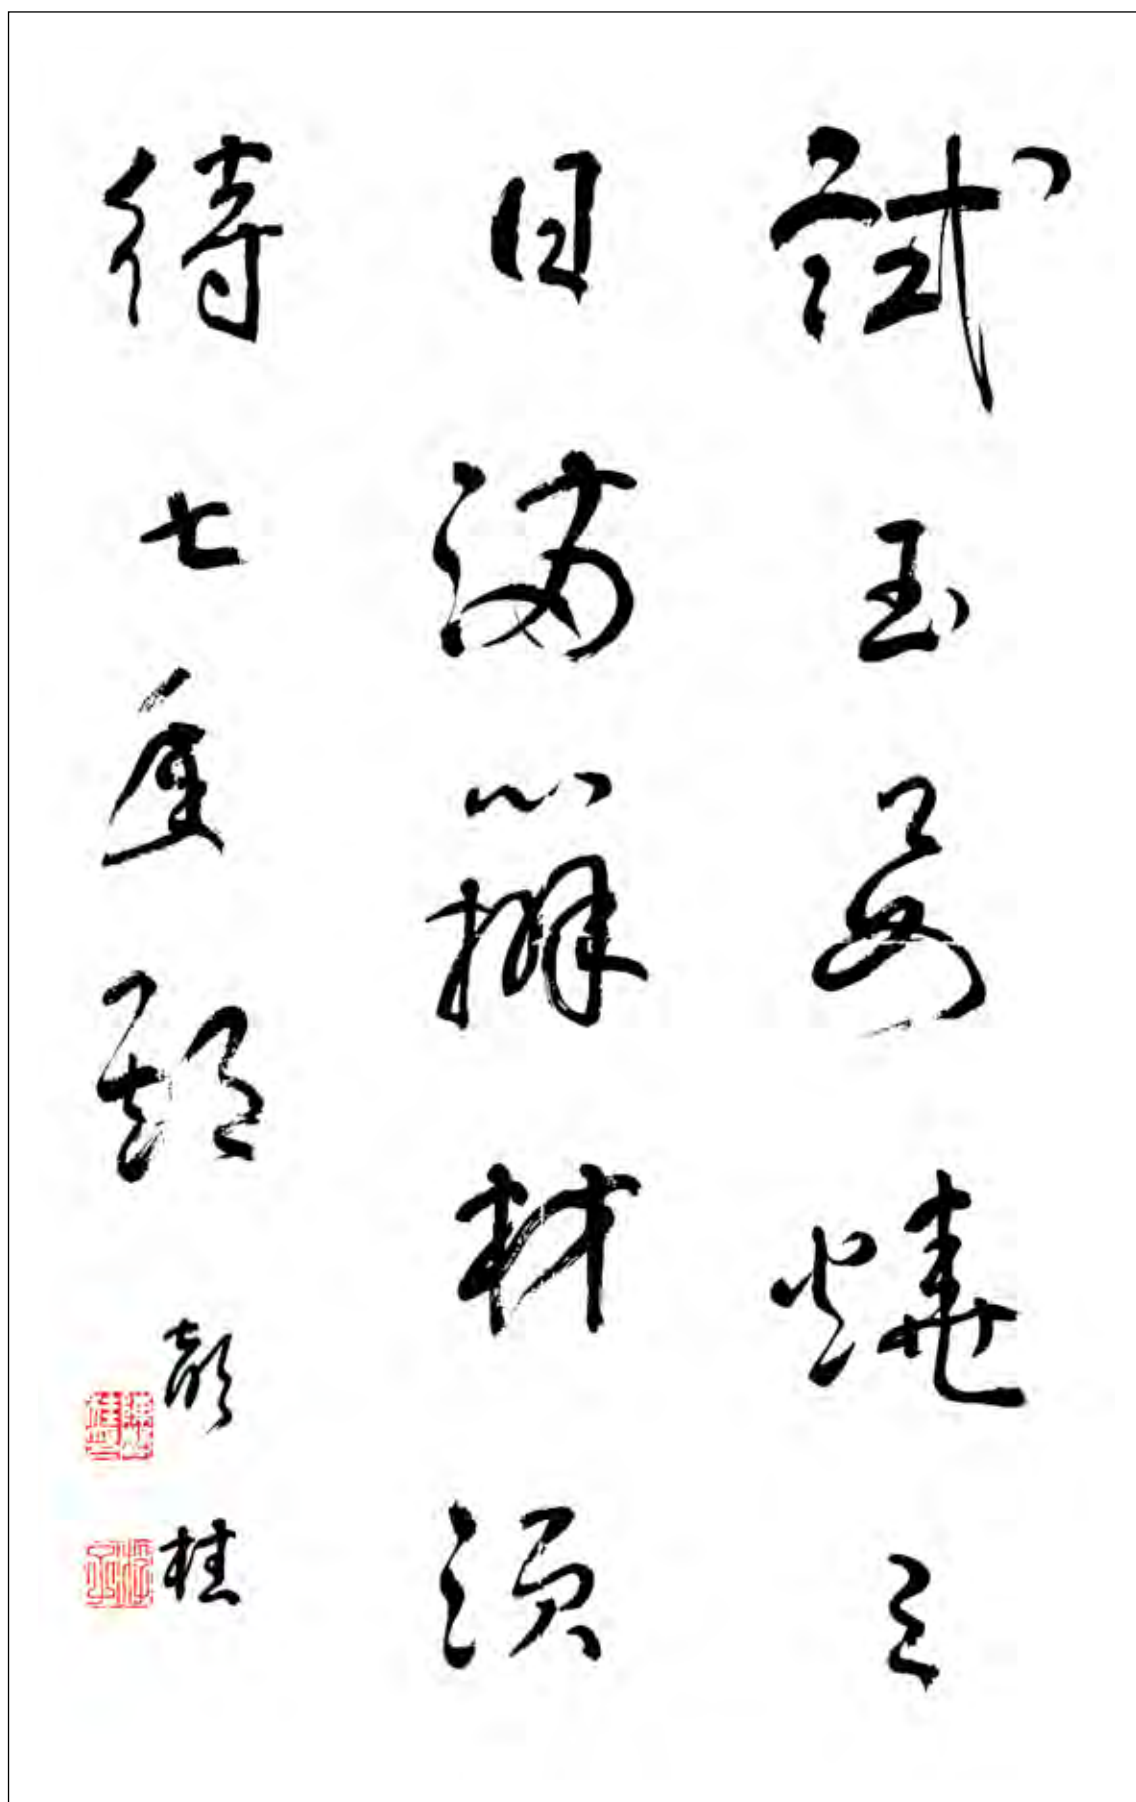 試玉要燒三
日滿辨材須
待七年期
桂